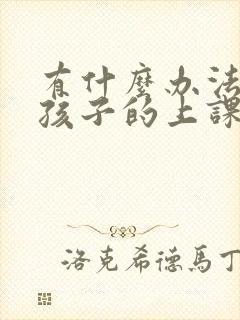 有什麼办法
孩子的上課
洛克希德馬丁